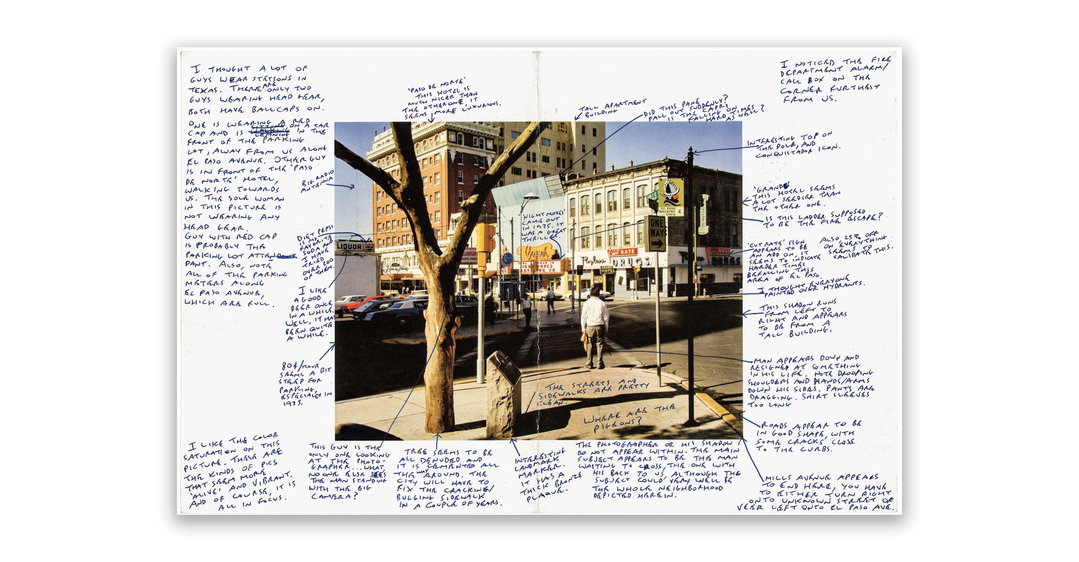 I THOUGHT A LOT OF
GUYS WEAR STETSONS IN
TEXAS. THERE ARE ONLY TWO
GUYS WEARING HEAD GEAR,
BOTH HAVE BALLCAPS ON.
ONE IS WEARING A RED
CAP AND IS LEANING ON A CAR IN THE
FRONT OF THE PARKING
LOT, AWAY FROM US ALONG
EL PASO AVENUE. OTHER GUY
IS IN FRONT OF THE 'PASO
DE NORTE' HOTEL,
WALKING TOWARDS
US. THE SOLE WOMAN
IN THIS PICTURE IS
NOT WEARING ANY
HEAD GEAR.
GUY WITH RED CAP
IS PROBABLY THE
PARKING LOT ATTENDANT
. ALSO, NOTE
ALL OF THE PARKING
METERS ALONG
EL PASO AVENUE,
WHICH ARE FULL.
'PASO DE NORTE'
THIS HOTEL IS
MUCH NICER THAN
THE OTHER ONE, IT
SEEMS MORE LUXURIOUS.
TALL APARTMENT
BUILDING
I NOTICED THE FIRE
DEPARTMENT ALARM/
CALL BOX ON THE
CORNER FURTHEST
FROM US.
INTERESTING TOP ON
THE POLE, AND
CONQUISTADOR ICON.
BIG RADIO
ANTENNA
'GRAND'
THIS HOTEL SEEMS
A LOT SEEDIER THAN
THE OTHER ONE.
IS THIS LADDER SUPPOSED
TO BE THE FIRE ESCAPE?
'NIGHT MOVES'
CAME OUT
IN 1975. IT
WAS A GREAT
THRILLER
ONE WAY
LIQUOR
CUT RATE
DRUGS
DIET PEPSI
IS MY
FAVORITE
SODA AND
I HAVE
TRIED
OVER 50
OF THEM
'CUT RATE' SIGN
APPEARS TO BE
AN ADD ON. IT
SEEMS TO INDICATE
HARDER TIMES
BEFALLING THIS
AREA OF EL PASO.
ALSO 25% OFF
ON EVERYTHING
SEEMS TO
VALIDATE THIS.
I THOUGHT EVERYONE
PAINTED OVER HYDRANTS.
I LIKE
A GOOD
BEER ONCE
IN A WHILE.
WELL, IT HAS
BEEN QUITE
A WHILE.
THIS SHADOW RUNS
FROM LEFT TO
RIGHT AND APPEARS
TO BE FROM A
TALL BUILDING.
80¢/HOUR
SEEMS A BIT
STEEP FOR
PARKING,
ESPECIALLY IN
1975.
MAN APPEARS DOWN AND
RESIGNED AT SOMETHING
IN HIS LIFE. NOTE DROOPING
SHOULDERS AND HANDS/ARMS
DOWN HIS SIDES. PANTS ARE
DRAGGING. SHIRT SLEEVES
TOO LONG
THE STREETS AND
SIDEWALKS ARE PRETTY
CLEAN
WHERE ARE THE
PIGEONS?
ROADS APPEAR TO BE
IN GOOD SHAPE, WITH
SOME CRACKS CLOSE
TO THE CURBS.
I LIKE THE COLOR
SATURATION ON THIS
PICTURE. THESE ARE
THE KINDS OF PICS
THAT SEEM MORE
'ALIVE' AND VIBRANT.
AND OF COURSE, IT IS
ALL IN FOCUS.
THIS GUY IS THE
ONLY ONE LOOKING
AT THE PHOTO-
GRAPHER...WHAT,
NO ONE ELSE SEES
THE MAN STANDING
WITH THE BIG
CAMERA?
TREE SEEMS TO BE
ALL DENUDED AND
IT IS CEMENTED ALL
THE WAY AROUND. THE
CITY WILL HAVE TO
FIX THE CRACKING/
BULGING SIDEWALK
IN A COUPLE OF YEARS.
INTERESTING
LANDMARK
MARKER.
IT HAS A
THICK BRONZE
PLAQUE.
THE PHOTOGRAPHER OR HIS SHADOW
DO NOT APPEAR WITHIN. THE MAIN
SUBJECT APPEARS TO BE THIS MAN
WAITING TO CROSS, THE ONE WITH
HIS BACK TO US ALTHOUGH THE
SUBJECT COULD VERY WELL BE
THE WHOLE NEIGHBORHOOD
DEPICTED HEREIN.
MILLS AVENUE APPEARS
TO END HERE, YOU HAVE
TO EITHER TURN RIGHT
ONTO UNKNOWN STREET OR
VEER LEFT ONTO EL PASO AVE.